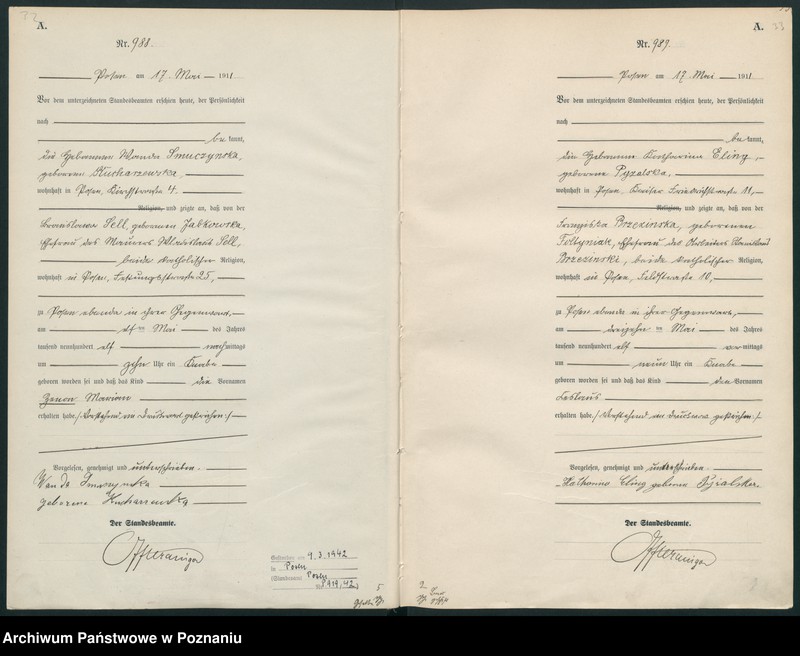 A.
Nr. 988.
Posen am 17. Mai 1911
Vor dem unterzeichneten Standesbeamten erschien heute, der Persönlichkeit
nach
be kannt,
die Hebamme Wanda Smuczynska,
geborenen Kucharzewska,
wohnhaft in Posen, 4.
Religion, und zeigte an, daß von der
Bronislawa Sell, geborenen Jabkowska,
Ehefrau des Maurers Wladislaus Sell,
beide katholischer Religion,
wohnhaft in Posen, 25,
zu Posen ebenda in ihrer Gegenwart,
am elf ten Mai des Jahres
tausend neunhundert elf nachmittags
um zehn Uhr ein Knabe
geboren worden sei und daß das Kind die Vornamen
Zenon Marian
erhalten habe. /: Vorstehend im Druckwort gestrichen :/
Vorgelesen, genehmigt und unterschrieben.
Wanda Smuczynska
geborene Kucharzewska
Der Standesbeamte.
Gestorben am 9.3.1942
in Posen
(Standesamt Posen
Nr. 919/42)
A.
33
Nr. 989.
Posen am 17. Mai 1911
Vor dem unterzeichneten Standesbeamten erschien heute, der Persönlichkeit
nach
be kannt,
die Hebamme Katharina Eling,
geborene Pyzalska,
wohnhaft in Posen, Kaiser Friedrichstraße 11,
Religion, und zeigte an, daß von der
Franziska Brzezinska, geborenen
Foltyniak, Ehefrau des Arbeiters Stanislaus
Brzezinski, beide katholischer Religion,
wohnhaft in Posen, Feldstraße 10,
zu Posen ebenda in ihrer Gegenwart,
am dreizehn ten Mai des Jahres
tausend neunhundert elf vormittags
um neun Uhr ein Knabe
geboren worden sei und daß das Kind den Vornamen
Ceslaus
erhalten habe. /: Vorstehend im Druckwort gestrichen :/
Vorgelesen, genehmigt und unterschrieben.
Katharina Eling geborene Pyzalska.
Der Standesbeamte.
Archiwum Państwowe w Poznaniu